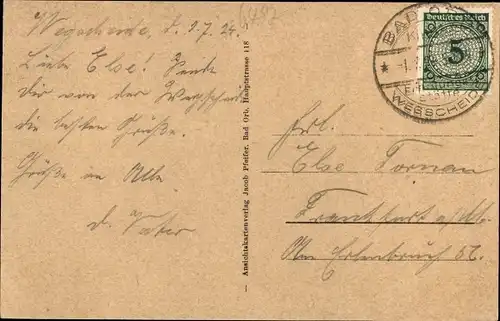 Wegscheide, d. 9.7.24.
Liebe Else! Sende
Dir von der Wegscheide
die besten Grüße.
Grüße an Alle.
d. Vater
Ansichtskartenverlag Jacob Pfeifer, Bad Orb, Hauptstrasse 118
BAD ORB
WEGSCHEIDE
Deutsches Reich
5
Frl.
Else Tornau
Frankfurt a/M.
Am Erlenbruch 52.